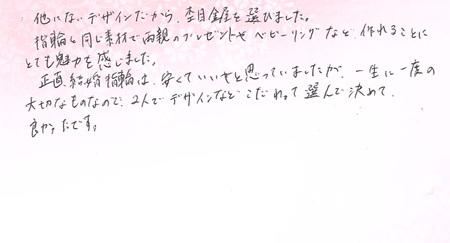 他にないデザインだから、杢目金屋を選びました。
指輪と同じ素材で両親のプレゼントやベビーリングなど、作れることに
とても魅力を感じました。
正直、結婚指輪は、安くていいやと思っていましたが、一生に一度の
大切なものなので、2人でデザインなどこだわって選んで決めて、
良かったです。